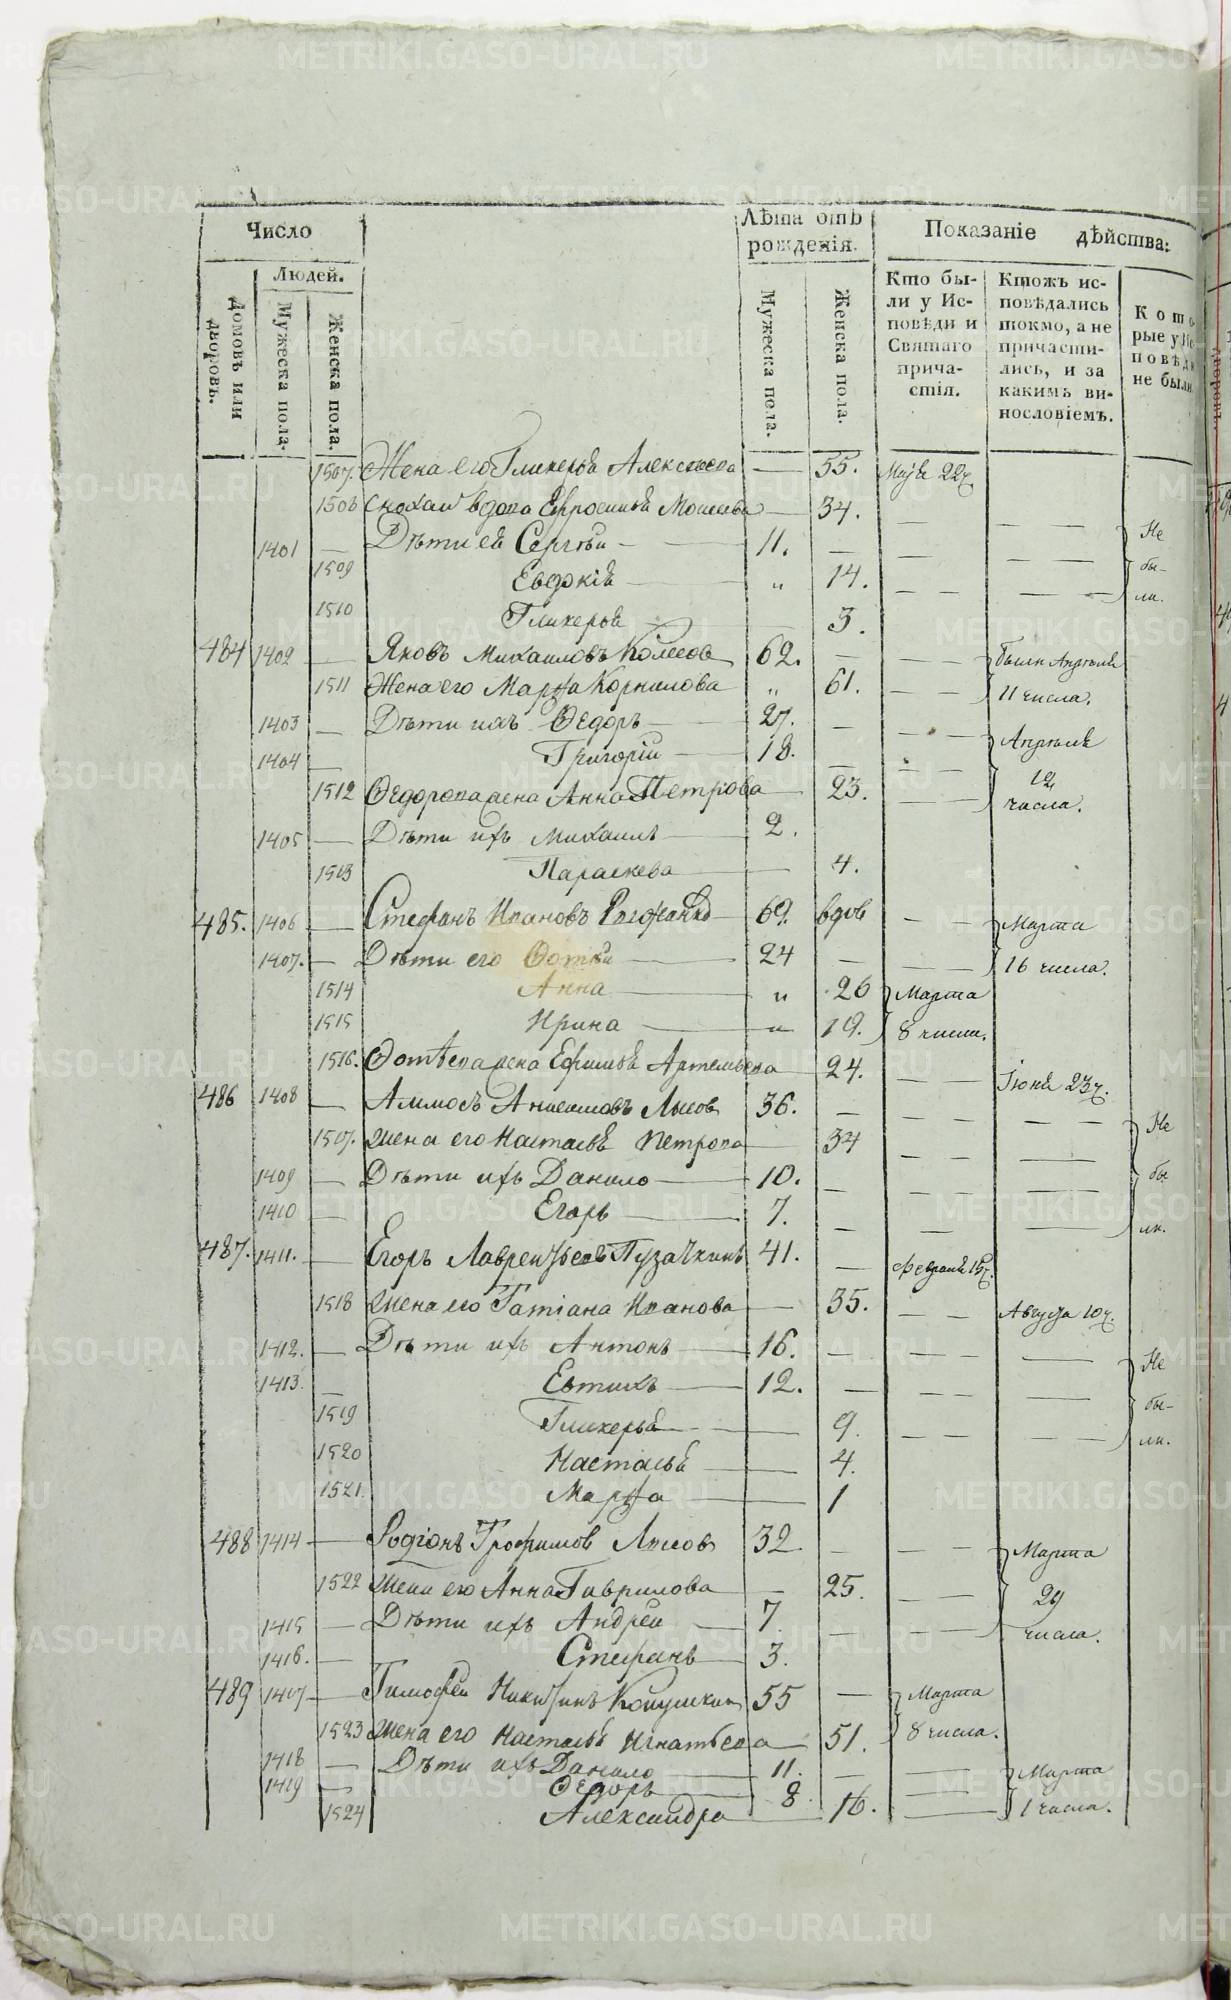 Число
Людей.
Домовъ или дворовъ.
Мужеска пола.
Женска пола.
Лѣта отъ рожденія.
Мужеска пола.
Женска пола.
Показаніе дѣйства:
Кто бы-
ли у Ис-
повѣди и
Святаго
прича-
стія.
Ктожъ ис-
повѣдались
токмо, а не
причасти-
лись, и за
какимъ ви-
нословіемъ.
Кото-
рые у Ис
повѣди
не были
1507. Жена его Гликерья Алексѣева — 55. Маія 22 ч.
1508 вдова Евросинья Моисеева — 34. — —
1401 — Дѣти её Сергѣй — 11. — — — Не
1509 Евдокія — „ 14. — — — бы-
1510 Гликерья — 3. — — ли.
484 1402 — Яковъ Михаиловъ 62. — — — были Апрѣля
1511 Жена его Марѳа Корнилова „ 61. — — 11 числа.
1403 — Дѣти ихъ Ѳедоръ — 27. — — — Апрѣля
1404 — Григоріи — 18. — — — 12
1512 Ѳедорова жена Анна Петрова — 23. — — числа.
1405 — Дѣти ихъ Михаилъ — 2.
1513 Параскева — 4.
485. 1406 — Стефанъ Ивановъ — 69. вдов — — Марта
1407. — Дѣти его Фотѣй — 24 — — — 16 числа.
1514 Анна — „ 26 Марта
1515 Ирина — „ 19. 8 числа.
1516. Фотѣева жена Ефимья Артемьева — 24. — — Іюня 23 ч.
486 1408 — Аммосъ Лысов 36. — — — — —
1507. Жена его Настасья Петрова — 34 — — — Не
1409 — Дѣти ихъ Данило — 10. — — — — бы
1410 — Егоръ — 7. — — — — ли.
487. 1411. — Егоръ Лаврентьевъ Пузачкинъ 41. — Февраля 15 ч.
1518 Жена его Татіана Иванова — 35. — — Августа 10 ч.
1412. — Дѣти ихъ Антонъ — 16. — — — — Не
1413. — Евтихъ — 12. — — — —
1519 Гликерья — 9. — — — бы-
1520 Настасья — 4. ли.
1521. Марѳа — 1
488 1414 — Родіонъ Трофимов Лысов 32. — — — Марта
1522 Жена его Анна Гаврилова — 25. — — 29
1415 — Дѣти ихъ Андрей — 7. — — — числа.
1416. — Стефанъ — 3.
489 1417 — Тимофей Никитинъ 55 — Марта
1523 Жена его Настасья Игнатьева 51. 8 числа.
1418 — Дѣти ихъ Данило — 11. — — Марта
1419 — Ѳедоръ — 8. — 1 числа.
1524 Александра — 16. —
METRIKI.GASO-URAL.RU